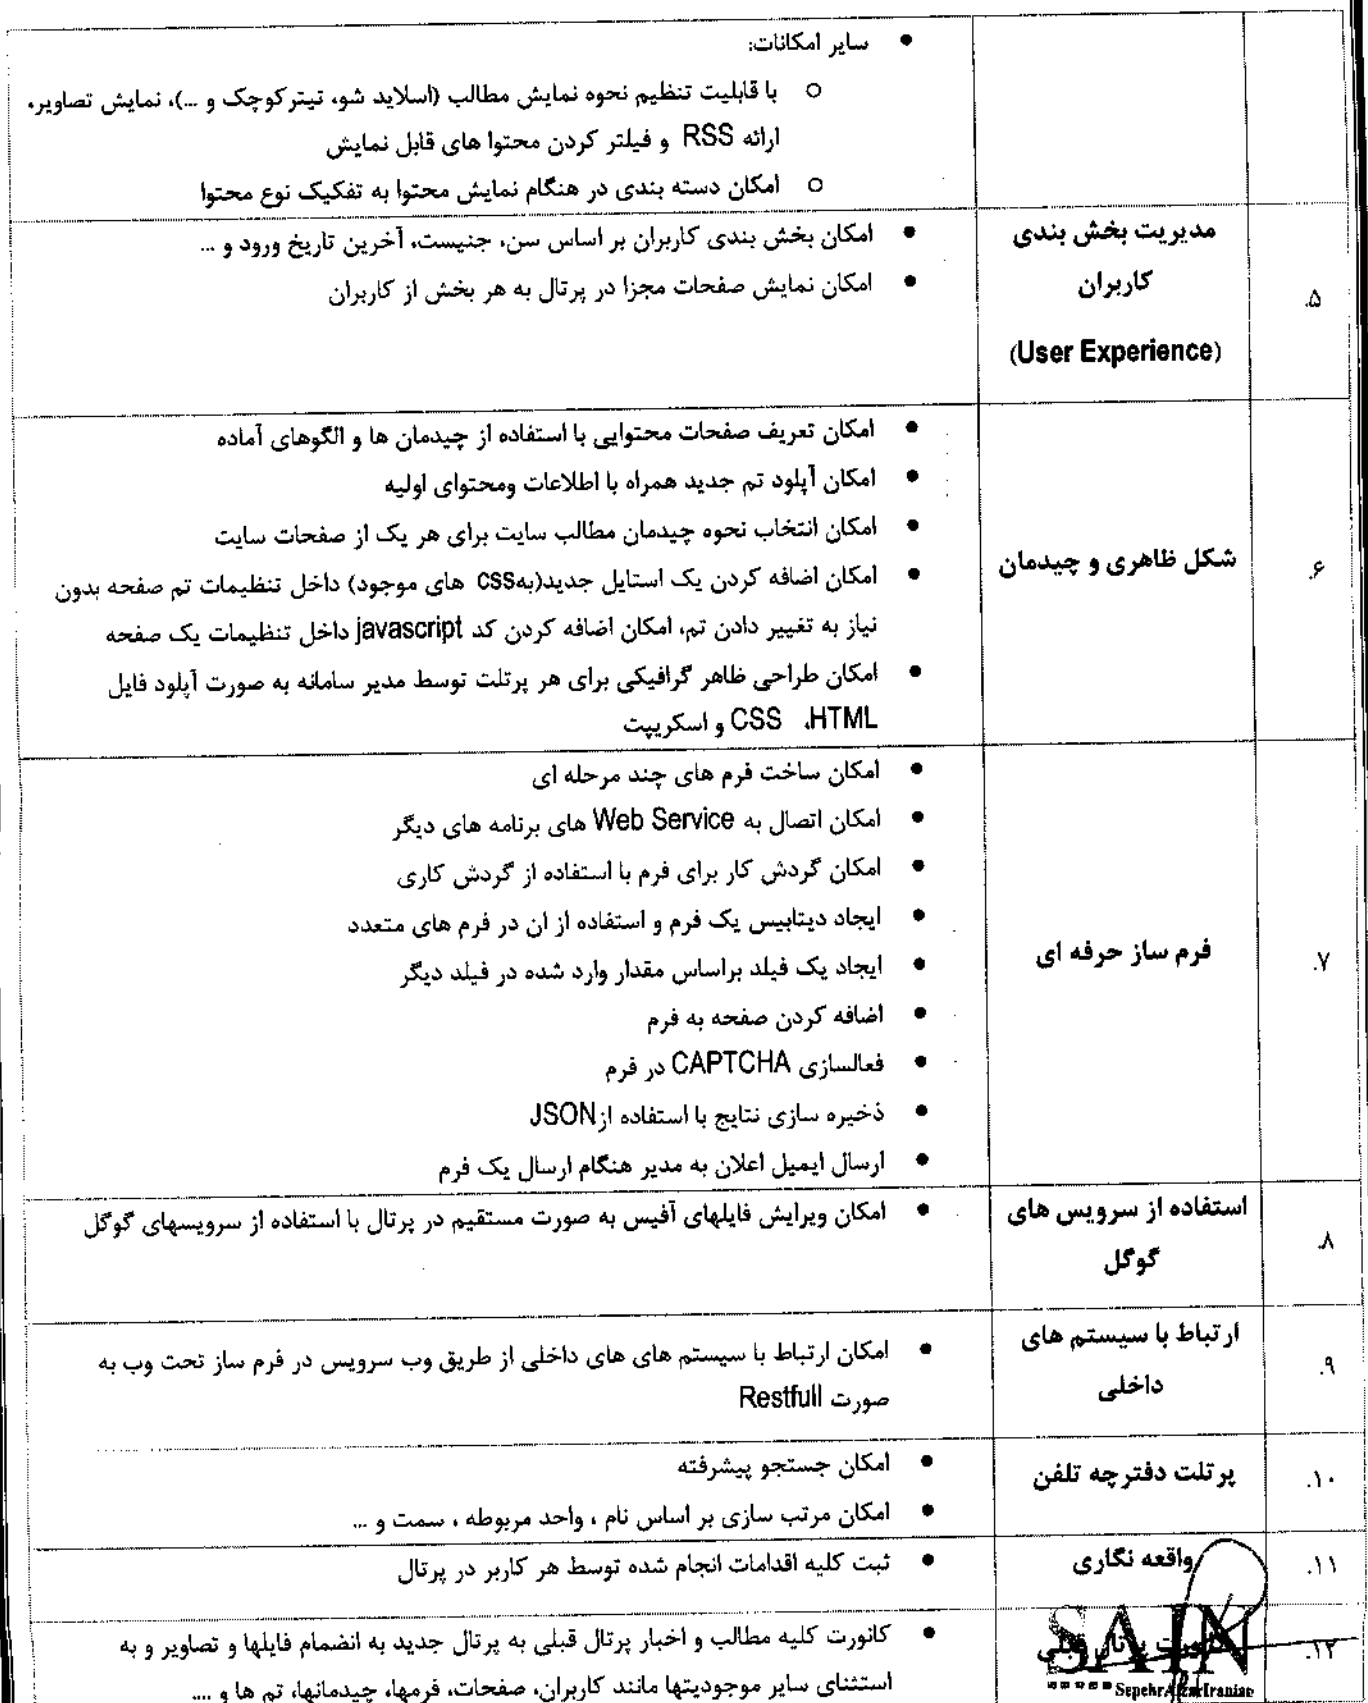 سایر امکانات:
با قابلیت تنظیم نحوه نمایش مطالب (اسلاید شو، تیترکوچک و ...)، نمایش تصاویر،
ارائه RSS و فیلتر کردن محتوا های قابل نمایش
امکان دسته بندی در هنگام نمایش محتوا به تفکیک نوع محتوا
۵.
مدیریت بخش بندی
کاربران
(User Experience)
امکان بخش بندی کاربران بر اساس سن، جنیست، آخرین تاریخ ورود و ...
امکان نمایش صفحات مجزا در پرتال به هر بخش از کاربران
۶.
شکل ظاهری و چیدمان
امکان تعریف صفحات محتوایی با استفاده از چیدمان ها و الگوهای آماده
امکان آپلود تم جدید همراه با اطلاعات ومحتوای اولیه
امکان انتخاب نحوه چیدمان مطالب سایت برای هر یک از صفحات سایت
امکان اضافه کردن یک استایل جدید(بهcss های موجود) داخل تنظیمات تم صفحه بدون
نیاز به تغییر دادن تم، امکان اضافه کردن کد javascript داخل تنظیمات یک صفحه
امکان طراحی ظاهر گرافیکی برای هر پرتلت توسط مدیر سامانه به صورت آپلود فایل
HTML، CSS و اسکریپت
۷.
فرم ساز حرفه ای
امکان ساخت فرم های چند مرحله ای
امکان اتصال به Web Service های برنامه های دیگر
امکان گردش کار برای فرم با استفاده از گردش کاری
ایجاد دیتابیس یک فرم و استفاده از ان در فرم های متعدد
ایجاد یک فیلد براساس مقدار وارد شده در فیلد دیگر
اضافه کردن صفحه به فرم
فعالسازی CAPTCHA در فرم
ذخیره سازی نتایج با استفاده ازJSON
ارسال ایمیل اعلان به مدیر هنگام ارسال یک فرم
۸.
استفاده از سرویس های
گوگل
امکان ویرایش فایلهای آفیس به صورت مستقیم در پرتال با استفاده از سرویسهای گوگل
۹.
ارتباط با سیستم های
داخلی
امکان ارتباط با سیستم های های داخلی از طریق وب سرویس در فرم ساز تحت وب به
صورت Restfull
۱۰.
پرتلت دفترچه تلفن
امکان جستجو پیشرفته
امکان مرتب سازی بر اساس نام ، واحد مربوطه ، سمت و ...
۱۱.
واقعه نگاری
ثبت کلیه اقدامات انجام شده توسط هر کاربر در پرتال
۱۲.
پرتال قبلی
SAIN
SepehrAfzarIranian
کانورت کلیه مطالب و اخبار پرتال قبلی به پرتال جدید به انضمام فایلها و تصاویر و به
استثنای سایر موجودیتها مانند کاربران، صفحات، فرمها، چیدمانها، تم ها و ....